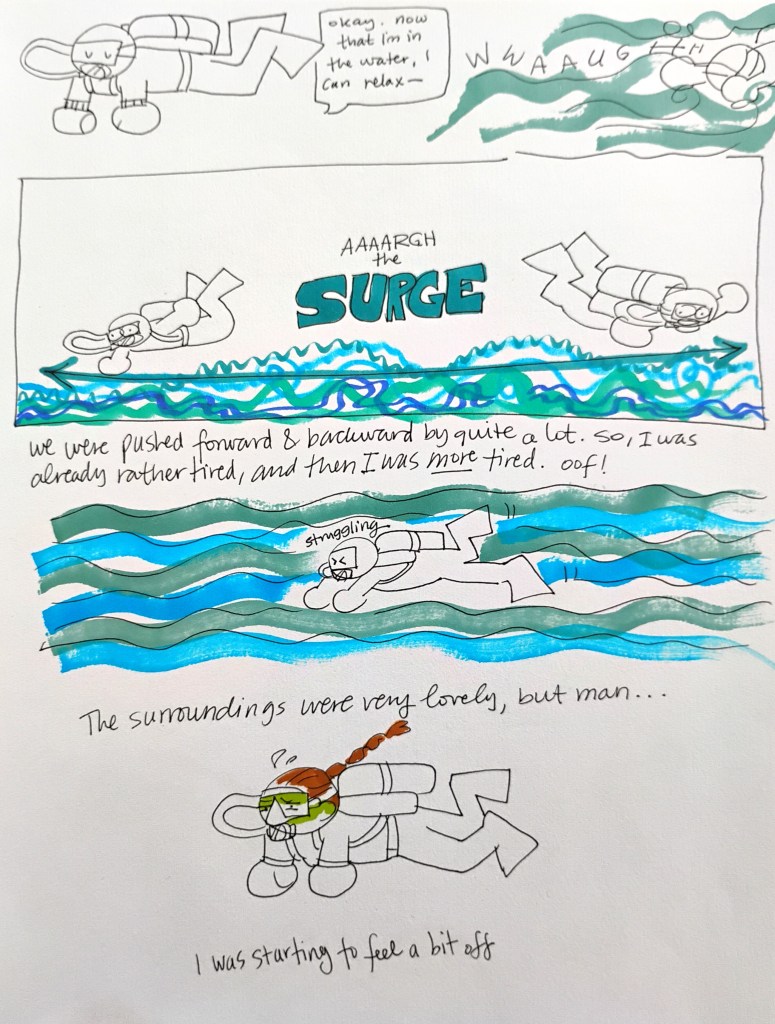 okay. now
that i'm in
the water, i
can relax—
WWAAUGHH
AAAARGH
the
SURGE
we were pushed forward & backward by quite a lot. so, I was
already rather tired, and then I was more tired. oof!
struggling
The surroundings were very lovely, but man...
I was starting to feel a bit off